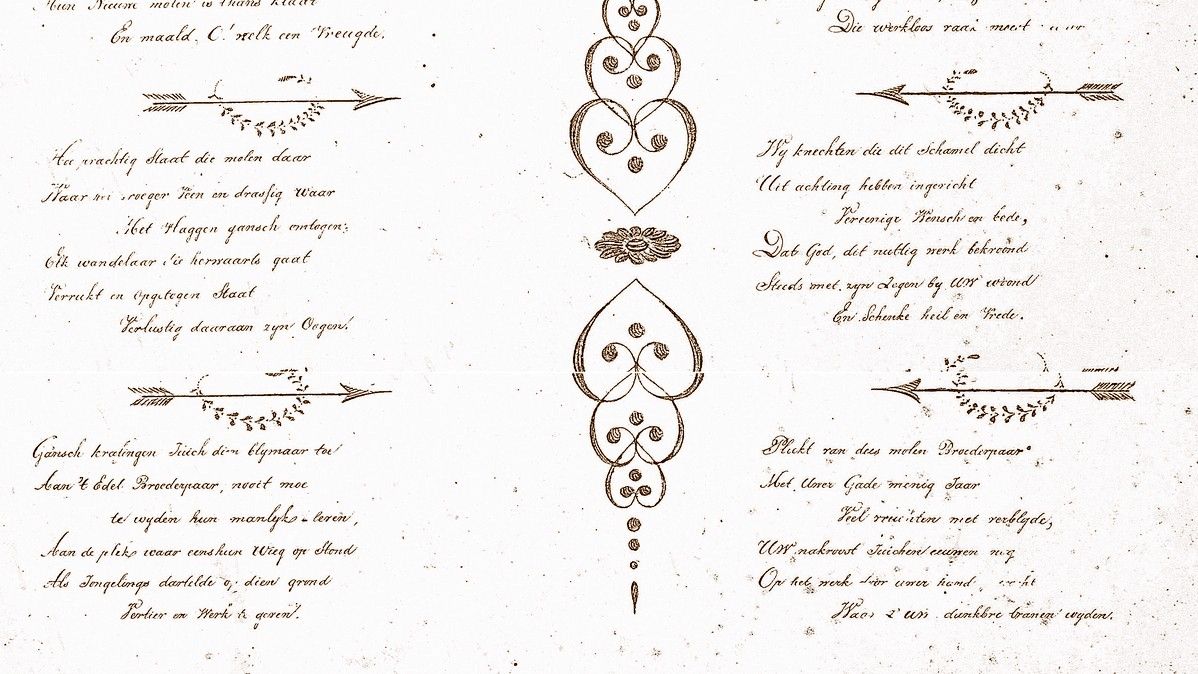 Hun Nieuwe molen is thans klaar
En maald. O! welk een Vreugde.
Hoe prachtig Staat die molen daar
Waar voroeger Veen en drassig waar
Met Plaggen gansch omtogen;
Elk wandelaar die herwaarts gaat
Verrukt en Opgetogen Staat
Verlustig daaraan zyn Oogen!
Gansch kralingen Juich dien blymaar toe
Aan 't Edel Broederpaar, nooit moe
te wyden hun manlyk leven,
Aan de plek waar eens hun Wieg op Stond
Als Jongelings dartelde op dien grond
Vertier en Werk te geven!
Die werkloos raak moest
Wy knechten die dit Schamel dicht
Uit achting hebben ingericht
Vereenige Wensch en bede,
Dat God, dit nuttig werk bekroond
Steeds met zyn Zegen by UW woond
En Schenke heil en Vrede.
Plukt van dees molen Broederpaar
Met Uwer Gade menig Jaar
Veel vruchten met verblyde,
UW nakroost Juichen eeuwen nog
Op het werk door uwer hand
Waar z' UW dankbre tranen wyden.